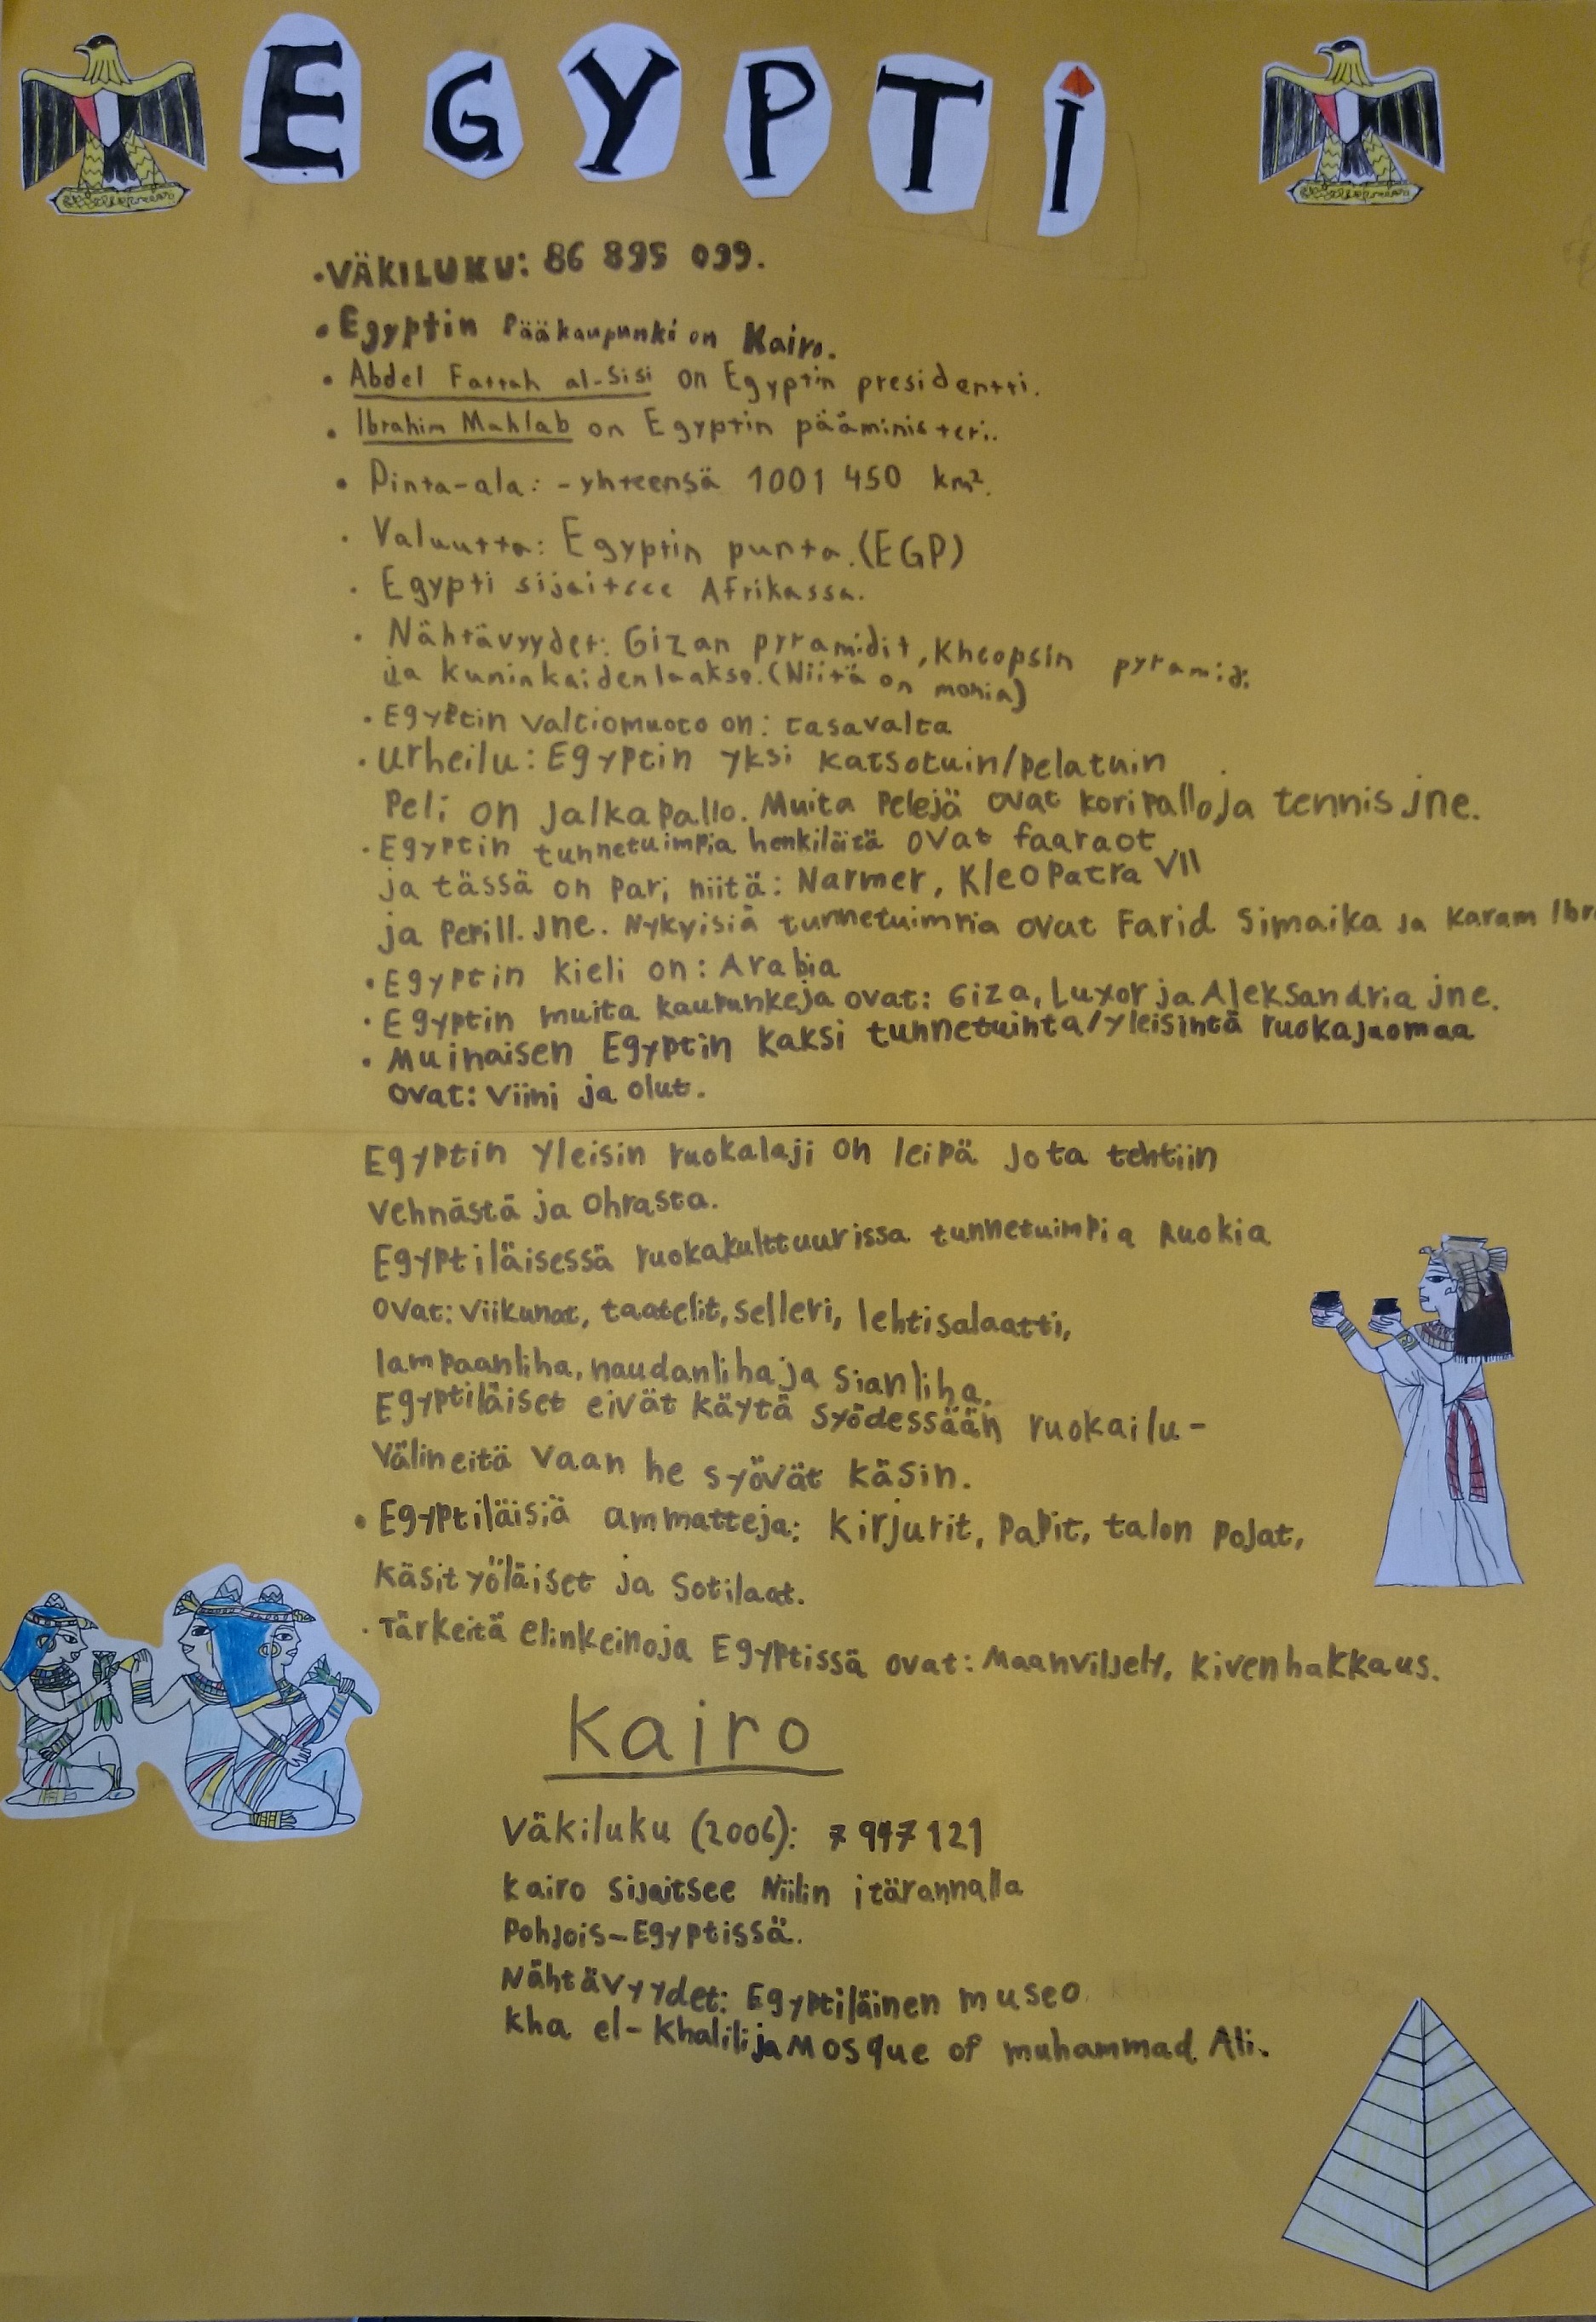 EGYPTI
•VÄKILUKU: 86 895 099.
•Egyptin Pääkaupunki on Kairo.
• Abdel Fattah al-Sisi on Egyptin presidentti.
• Ibrahim Mahlab on Egyptin pääministeri.
• Pinta-ala: -yhteensä 1001 450 km².
• Valuutta: Egyptin punta.(EGP)
• Egypti sijaitsee Afrikassa.
• Nähtävyydet: Gizan pyramidit, Kheopsin pyramidi
ja kuninkaidenlaakso.(Niitä on monia)
• Egyptin valtiomuoto on: tasavalta
• urheilu: Egyptin yksi katsotuin/pelatuin
Peli on jalkapallo. Muita Pelejä ovat koripallo ja tennis jne.
• Egyptin tunnetuimpia henkilöitä ovat faaraot
ja tässä on pari niitä: Narmer, Kleopatra VII
ja Perill. Jne. Nykyisiä tunnetuimpia ovat Farid Simaika ja Karam Ibr
• Egyptin kieli on: Arabia
• Egyptin muita kaupunkeja ovat: Giza, Luxor ja Aleksandria jne.
• Muinaisen Egyptin kaksi tunnetuinta/yleisintä ruokajuomaa
ovat: Viini ja olut.
Egyptin Yleisin ruokalaji on leipä Jota tehtiin
Vehnästä ja Ohrasta.
Egyptiläisessä ruokakulttuurissa tunnetuimpia Ruokia
ovat: Viikunat, taatelit, selleri, lehtisalaatti,
lampaanliha, naudanliha ja Sianliha.
Egyptiläiset eivät käytä syödessään ruokailu-
Välineitä Vaan he syövät käsin.
• Egyptiläisiä ammatteja: Kirjurit, Papit, talon pojat,
käsityöläiset ja Sotilaat.
• Tärkeitä elinkeinoja Egyptissä ovat: Maanviljely, Kivenhakkaus.
Kairo
Väkiluku (2006): 7 947 121
Kairo Sijaitsee Niilin itärannalla
Pohjois-Egyptissä.
Nähtävyydet: Egyptiläinen museo
kha el-Khalili ja Mosque of muhammad Ali.